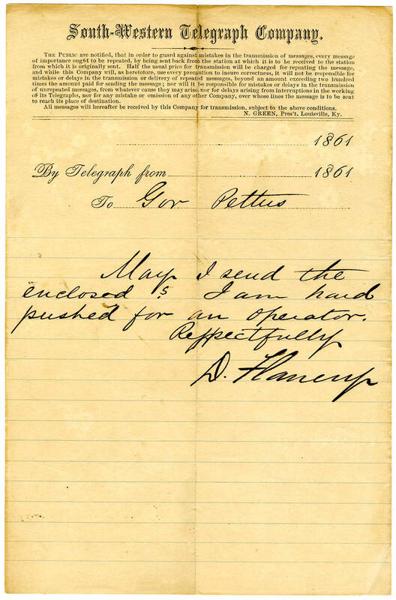 South-Western Telegraph Company.
THE PUBLIC are notified, that in order to guard against mistakes in the transmission of messages, every message
of importance ought to be repeated, by being sent back from the station at which it is to be received to the station
from which it is originally sent. Half the usual price for transmission will be charged for repeating the message,
and while this Company will, as heretofore, use every precaution to insure correctness, it will not be responsible for
mistakes or delays in the transmission or delivery of repeated messages, beyond an amount exceeding two hundred
times the amount paid for sending the message; nor will it be responsible for mistakes or delays in the transmission
of unrepeated messages, from whatever cause they may arise, nor for delays arising from interruptions in the working
of its Telegraphs, nor for any mistake or omission of any other Company, over whose lines the message is to be sent
to reach its place of destination.
All messages will hereafter be received by this Company for transmission, subject to the above conditions.
N. GREEN, Pres't, Louisville, Ky.
1861
By Telegraph from 1861
To Gov Pettus
May I send the
enclosed I am hard
pushed for an operator.
Respectfully
D. Flanery